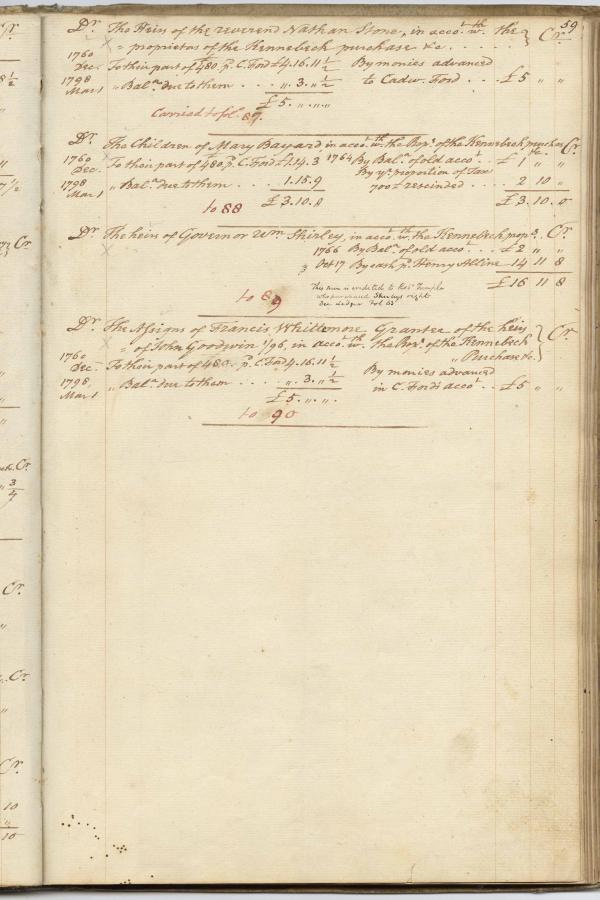 59
Dr. The Heirs of the reverend Nathan Stone, in acco.t w.th the } Cr.
= proprietors of the Kennebeck purchase &c. . . . . .
1760
Dec. To their part of £480, p. C. Ford £4.16.11½ By monies advanced
1798 to Cadw. Ford . . . . £5 " "
Mar 1 " Bal.ce due to them . . . . ". 3. "½
£5. ". ".
Carried to fol. 87
Dr. The Children of Mary Bayard in acco.t w.th the Prop.s of the Kennebeck purchase Cr.
1760 1764 By Bal.ce of old acco.t . . £1 " "
Dec. To their part of £480, p. C. Ford £1.14.3
By y.r proportion of Tax
1798 " Bal.ce due to them . . . . 1.15.9 700£ rescinded . . . . 2 10 "
Mar 1
£3.10.0 £3.10.0
to 88
Dr. The heirs of Governor Wm Shirley, in acco.t w.th the Kennebeck prop.s Cr.
1766 By Bal.ce of old acco.t . . . £2 " "
Oct 17 By cash p. Henry Alline 14 11 8
£16 11 8
This sum is credited to Rob.t Temple
who purchased Shirleys right
See Ledger Fol. 63
to 89
Dr. The Assigns of Francis Whittemore, Grantee of the heirs } Cr.
= of John Goodwin 1/96, in acco.t w.th the Prop.s of the Kennebeck
" Purchase &c.
1760
Dec. To their part of 480. p. C. Ford 4.16.11½ By monies advanced
1798, " Bal.ce due to them . . . . ". 3. "½ in C. Ford's acco.t . . £5 " "
Mar 1
£5. ". ".
to 90